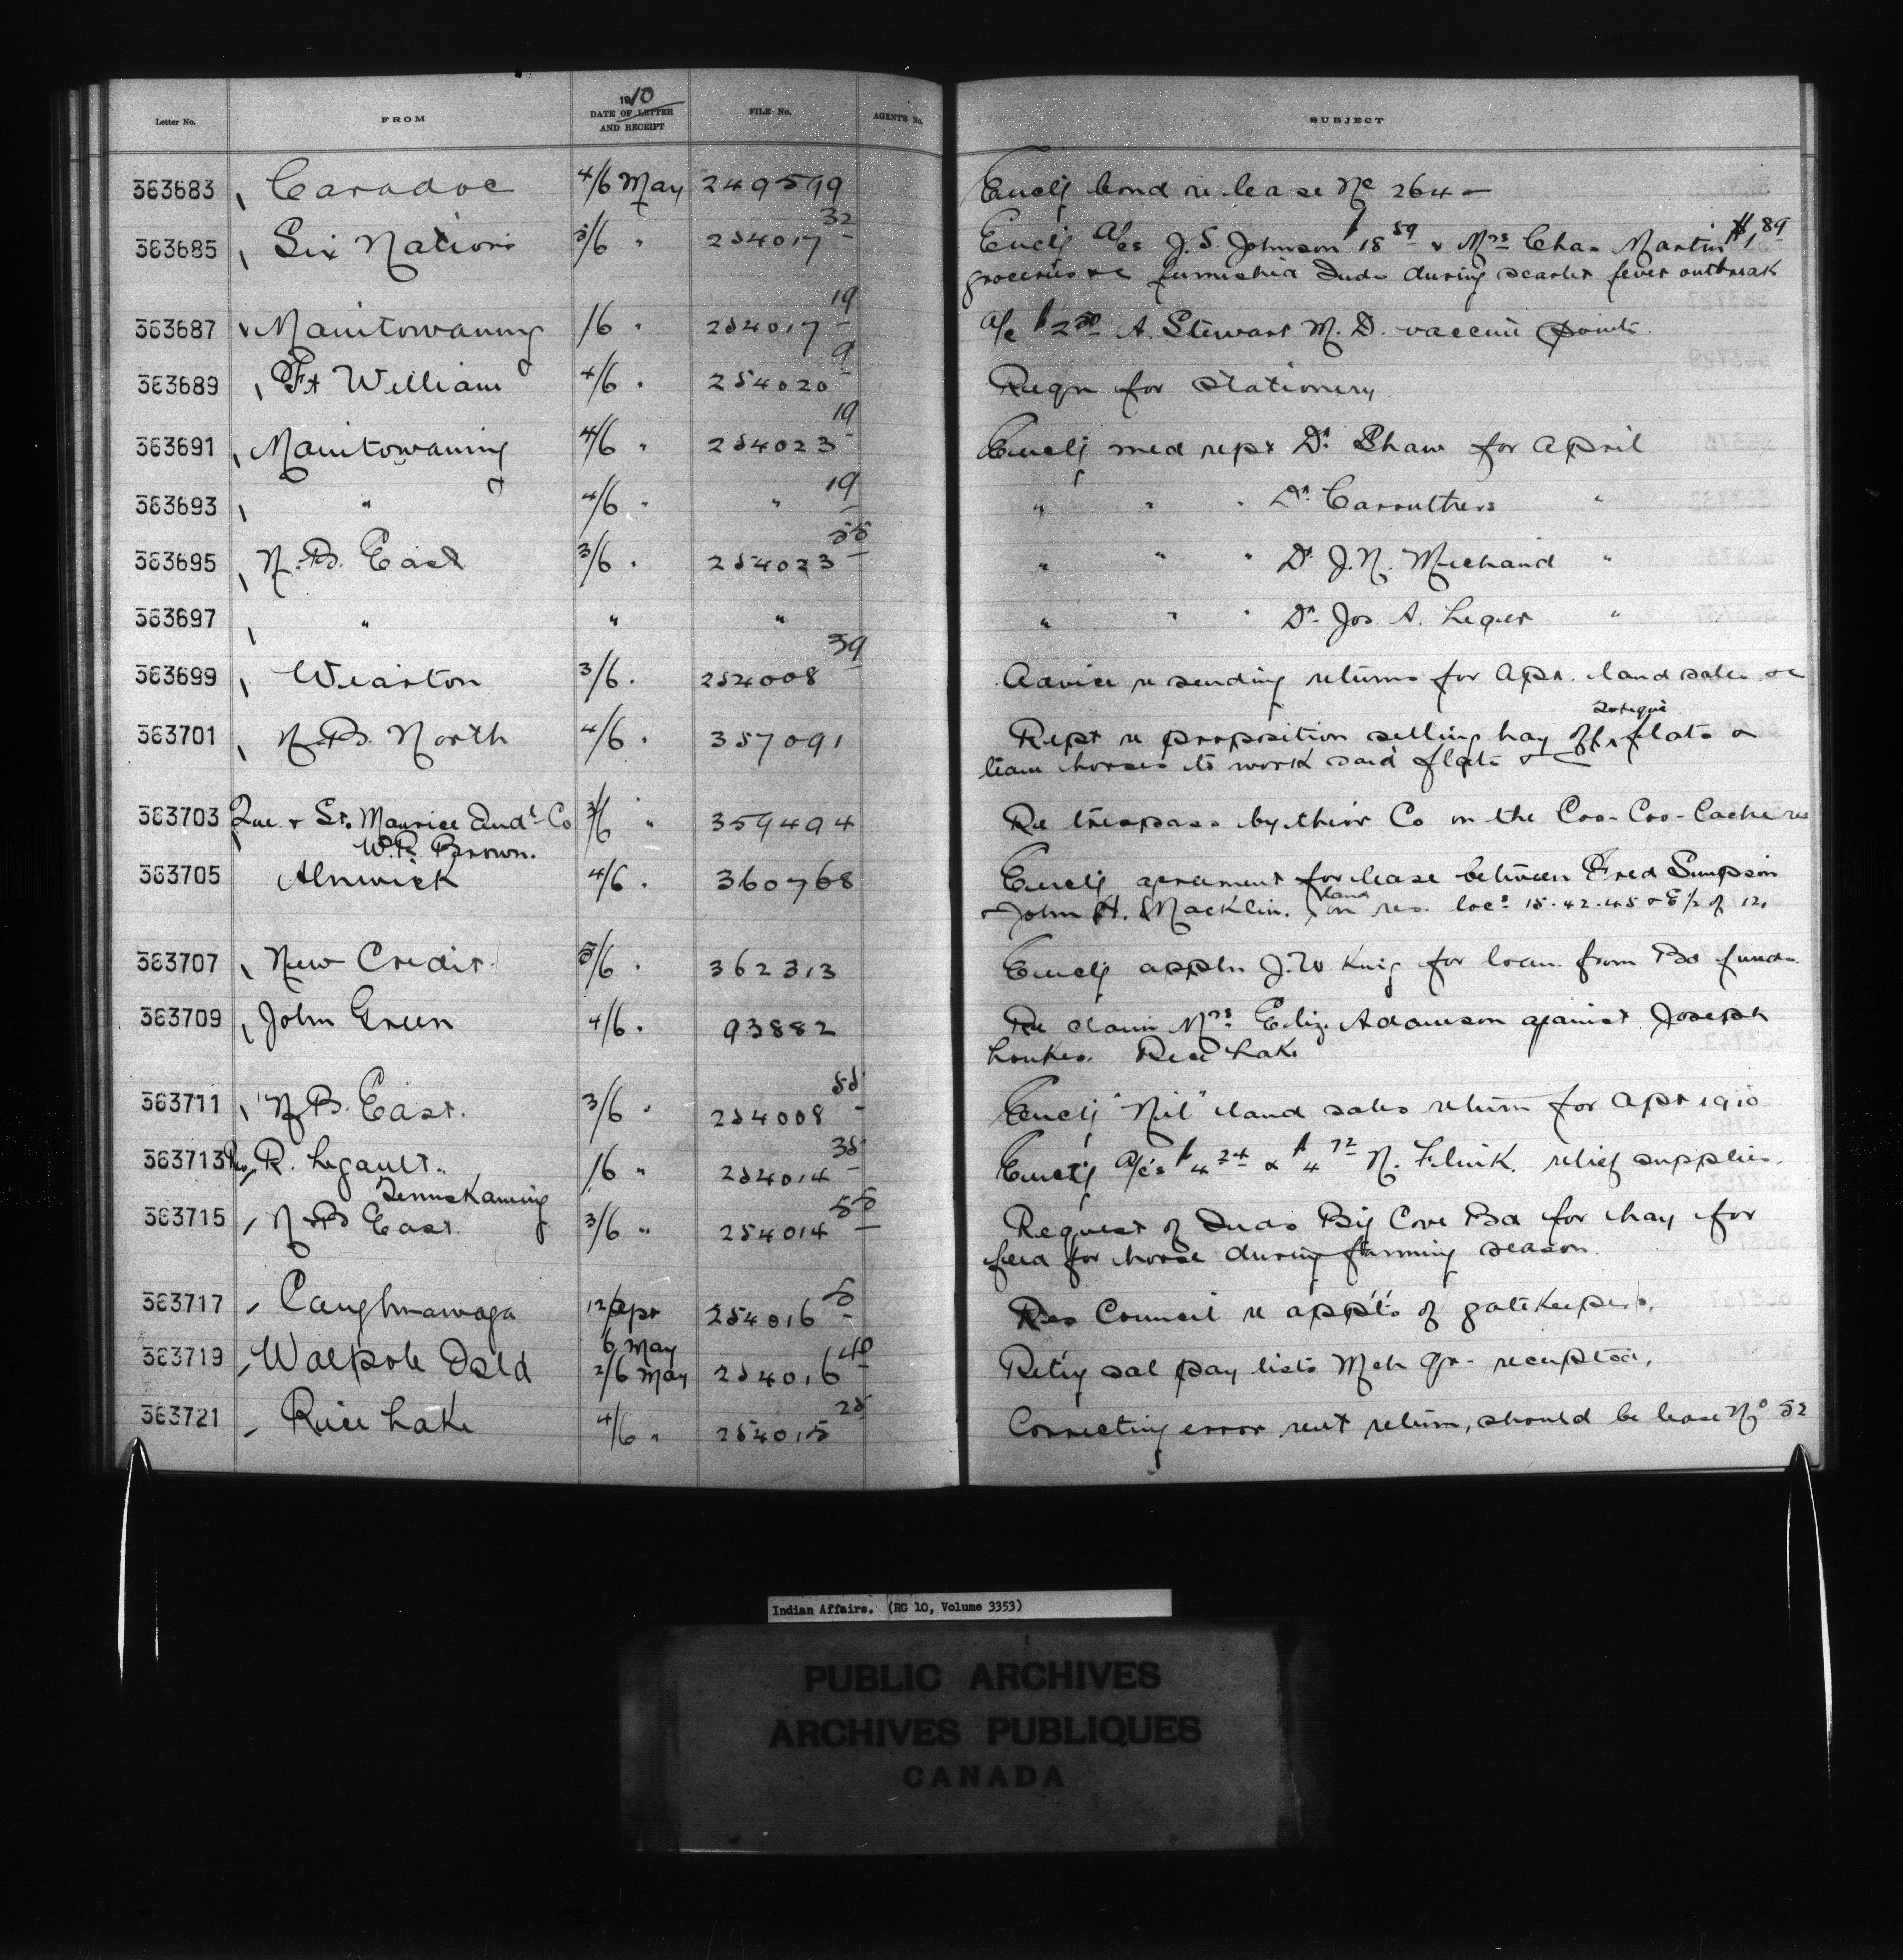 1910
Letter No. FROM DATE OF LETTER AND RECEIPT FILE No. AGENT'S No. SUBJECT
363683 Caradoc 4/6 May 249599 Enclg bond re lease No 264
363685 Six Nations 5/6 " 254017 32 Enclg a/cs J. S. Johnson $18 59 & Mrs Chas Martin $1 89
groceries &c furnished Inds during scarlet fever outbreak
363687 Manitowaning /6 " 254017 19 a/c $2 50 A. Stewart M. D. vaccine points
363689 Ft William 4/6 " 254020 9 Reqn for stationery
363691 Manitowaning 4/6 " 254023 19 Enclg med rept Dr. Shaw for April
363693 " 4/6 " " 19 " " " Dr. Carruthers "
363695 N. B. East 3/6 " 254023 55 " " " Dr. J. N. Michaud "
363697 " " " " " " Dr. Jos. A. Leger "
363699 Wiarton 3/6 " 254008 39 Advice re sending returns for Apr. land sales &c
363701 N. B. North 4/6 " 357091 Rept re proposition selling hay off Tobique flats &
team horses to work said flats &c
363703 Que. & St. Maurice Indl Co 3/6 " 359494 Re trespass by their Co on the Coo-Coo-Cache res
W. R. Brown.
363705 Alnwick 4/6 " 360768 Enclg agreement for lease between Fred Simpson
& John H. Macklin. land on res. locs 15.42.45 & E ½ of 12.
363707 New Credit 5/6 " 362313 Enclg appln J. W. King for loan from Bd funds
363709 John Green 4/6 " 93882 Re claim Mrs Eliz. Adamson against Joseph
Loukes. Rice Lake
363711 N. B. East. 3/6 " 254008 55 Enclg "Nil" land sales return for Apr 1910
363713 Rev R. Legault " /6 " 254014 35 Enclg a/cs $4 24 & $4 72 N. Flink. relief supplies.
Temiskaming
363715 N. B. East 3/6 " 254014 55 Request of Inds Big Cove Bd for hay for
feed for horse during farming season.
363717 Caughnawaga 12/Apr 254016 5 Res Council re appts of gatekeepers.
6 May
363719 Walpole Isld 2/6 May 254016 40 Retg sal pay lists Mch qr. receipted.
363721 Rice Lake 4/6 " 254015 25 Correcting error rent return, should be lease No 52
Indian Affairs. (RG 10, Volume 3353)
PUBLIC ARCHIVES
ARCHIVES PUBLIQUES
CANADA